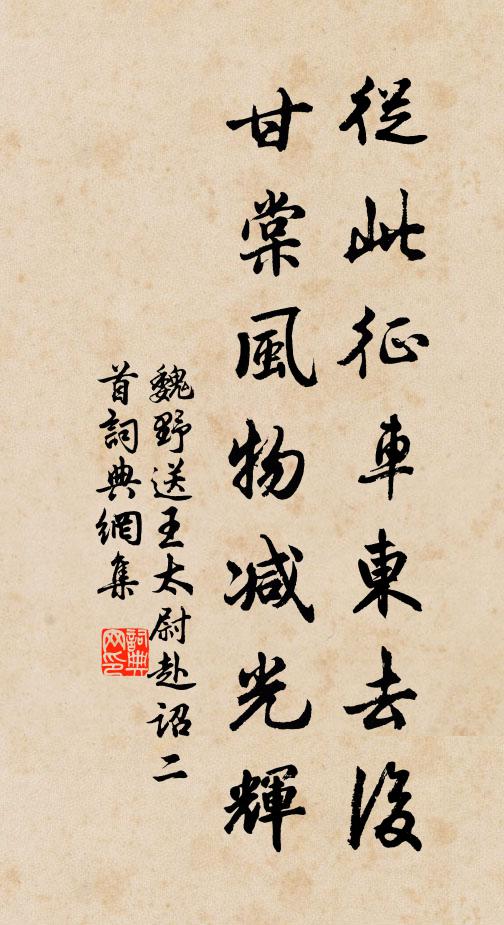 從此征車東去後
甘棠風物減光輝
魏野送王太尉赴詔二
首詞典網集
詞典
网印